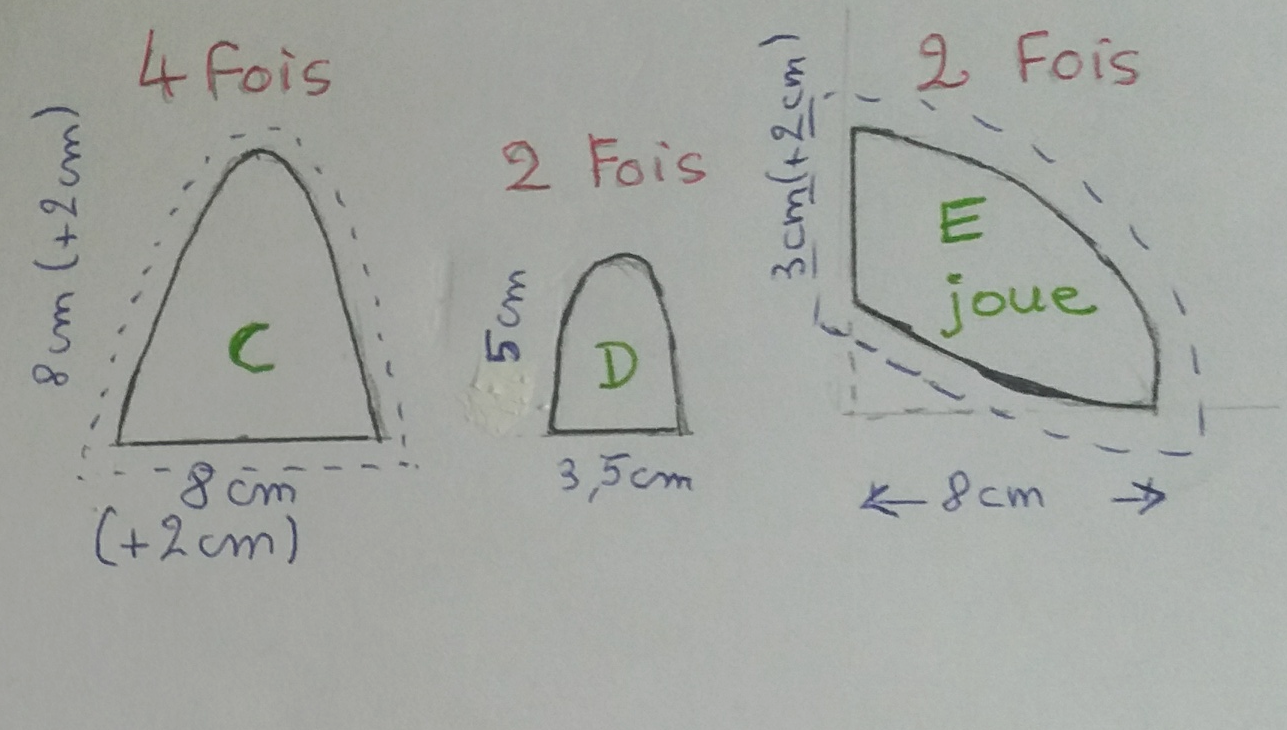 4 Fois
8cm (+2cm)
C
8cm
(+2cm)
2 Fois
5cm
D
3,5cm
2 Fois
3cm(+2cm)
E
joue
← 8cm →